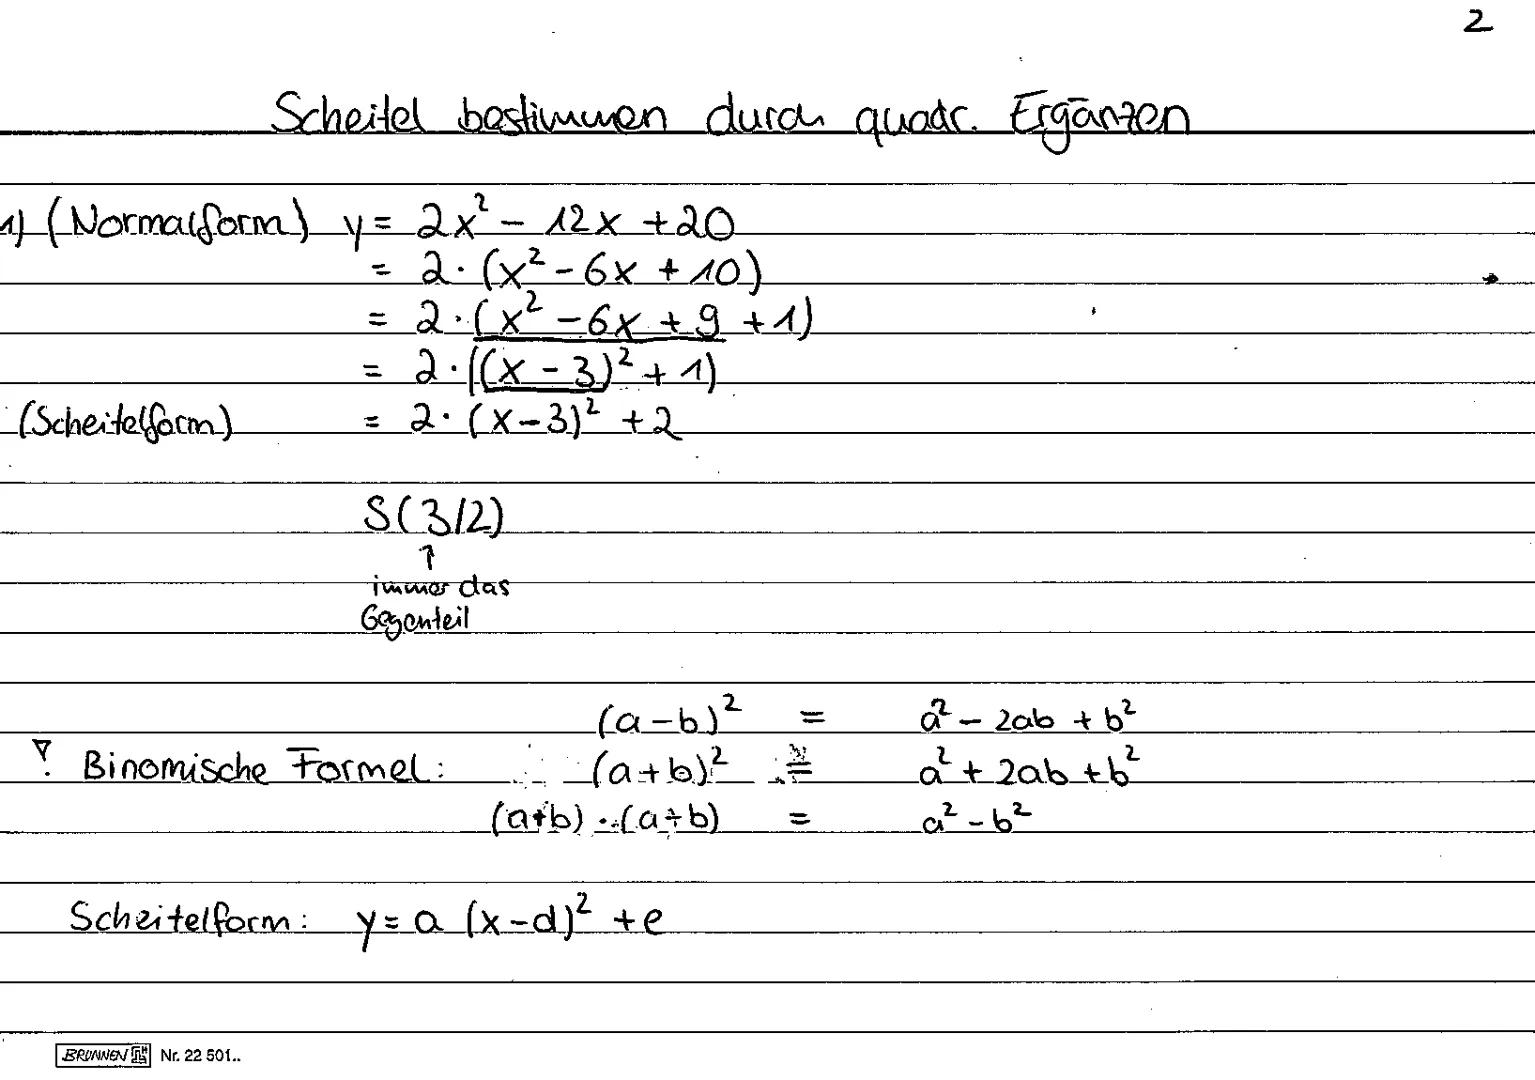 2
Scheitel bestimmen durch quadr. Ergänzen
1) (Normalform) y = 2x² - 12x + 20
= 2 · (x² - 6x + 10)
= 2 · (x² - 6x + 9 + 1)
= 2 · ((x - 3)² + 1)
(Scheitelform) = 2 · (x - 3)² + 2
S(3/2)
↑
immer das
Gegenteil
(a - b)² = a² - 2ab + b²
! Binomische Formel: (a + b)² = a² + 2ab + b²
(a+b) · (a÷b) = a² - b²
Scheitelform: y = a (x - d)² + e
BRUNNEN Nr. 22 501..